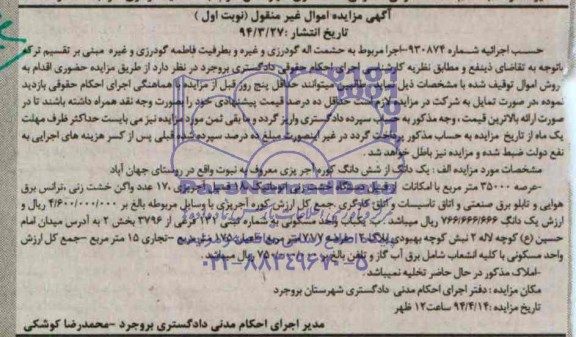 آگهی مزایده اموال غیر منقول (نوبت اول )
تاریخ انتشار :۹۴/۳/۲۷
حسب اجرائیه شماره ۹۳۰۸۷۴-اجرا مربوط به حشمت اله گودرزی و غیره و بطرفیت فاطمه گودرزی و غیره مبنی بر تقسیم ترکه
باتوجه به تقاضای ذینفع و مطابق نظریه کارشناس اجرای احکام حقوقی دادگستری بروجرد در نظر دارد از طریق مزایده حضوری اقدام به
روش اموال توقیف شده با مشخصات ذیل نماید طالبین میتوانند حداقل پنج روز قبل از مزایده با هماهنگی اجرای احکام حقوقی بازدید
نموده ،در صورت تمایل به شرکت در مزایده لازمست حداقل ده درصد قیمت پیشنهادی خود را بصورت وجه نقد همراه داشته باشند تا در
صورت ارائه بالاترین قیمت ، وجه مذکور به حساب سپرده دادگستری واریز گردد و ما بقی ثمن مورد مزایده نیز می بایست حداکثر ظرف مهلت
یک ماه از تاریخ مزایده به حساب مذکور پرداخت گردد در غیر اینصورت مبلغ ده درصد سپرده شده قبلی پس از کسر هزینه های اجرایی به
نفع دولت ضبط شده و مزایده نیز باطل خواهد شد .
مشخصات مورد مزایده الف : یک دانگ از شش دانگ کوره آجر پزی معروف به نبوت واقع در روستای جهان آباد
-عرصه ۳۵۰۰۰ متر مربع با امکانات دستگاه خشت زنی اتوماتیک ۱۸ قمیل آجرپزی ۱۷۰ عدد واگن خشت زنی ،ترانس برق
هوایی و تابلو برق صنعتی و اتاق تاسیسات و اتاق کارگری .جمع کل ارزش کوره آجرپزی با وسایل مربوطه بالغ بر ۴/۶۰۰/۰۰۰/۰۰۰ ریال و
ارزش یک دانگ ۷۶۶/۶۶۶/۶۶۶ ریال میباشد . ب: یکباب واحد مسکونی به شماره ثبتی فرعی از ۳۷۹۶ بخش ۲ به آدرس میدان امام
حسین (ع) کوچه لاله ۲ نبش کوچه بهبودی پلاک متر مربع اعیان متر مربع -تجاری ۱۵ متر مربع -جمع کل ارزش
واحد مسکونی با کلیه انشعاب شامل برق آب گاز و تلفن بالغ بر ریال میباشد
-املاک مذکور در حال حاضر تخلیه نمیباشد .
مکان مزایده : دفتر اجرای احکام مدنی دادگستری شهرستان بروجرد
تاریخ مزایده :۹۴/۴/۱۴ ساعت۱۲ ظهر
مدیر اجرای احکام مدنی دادگستری بروجرد -محمدرضا کوشکی
۰۲۱-۸۸۳۴۹۶۷۰-۵